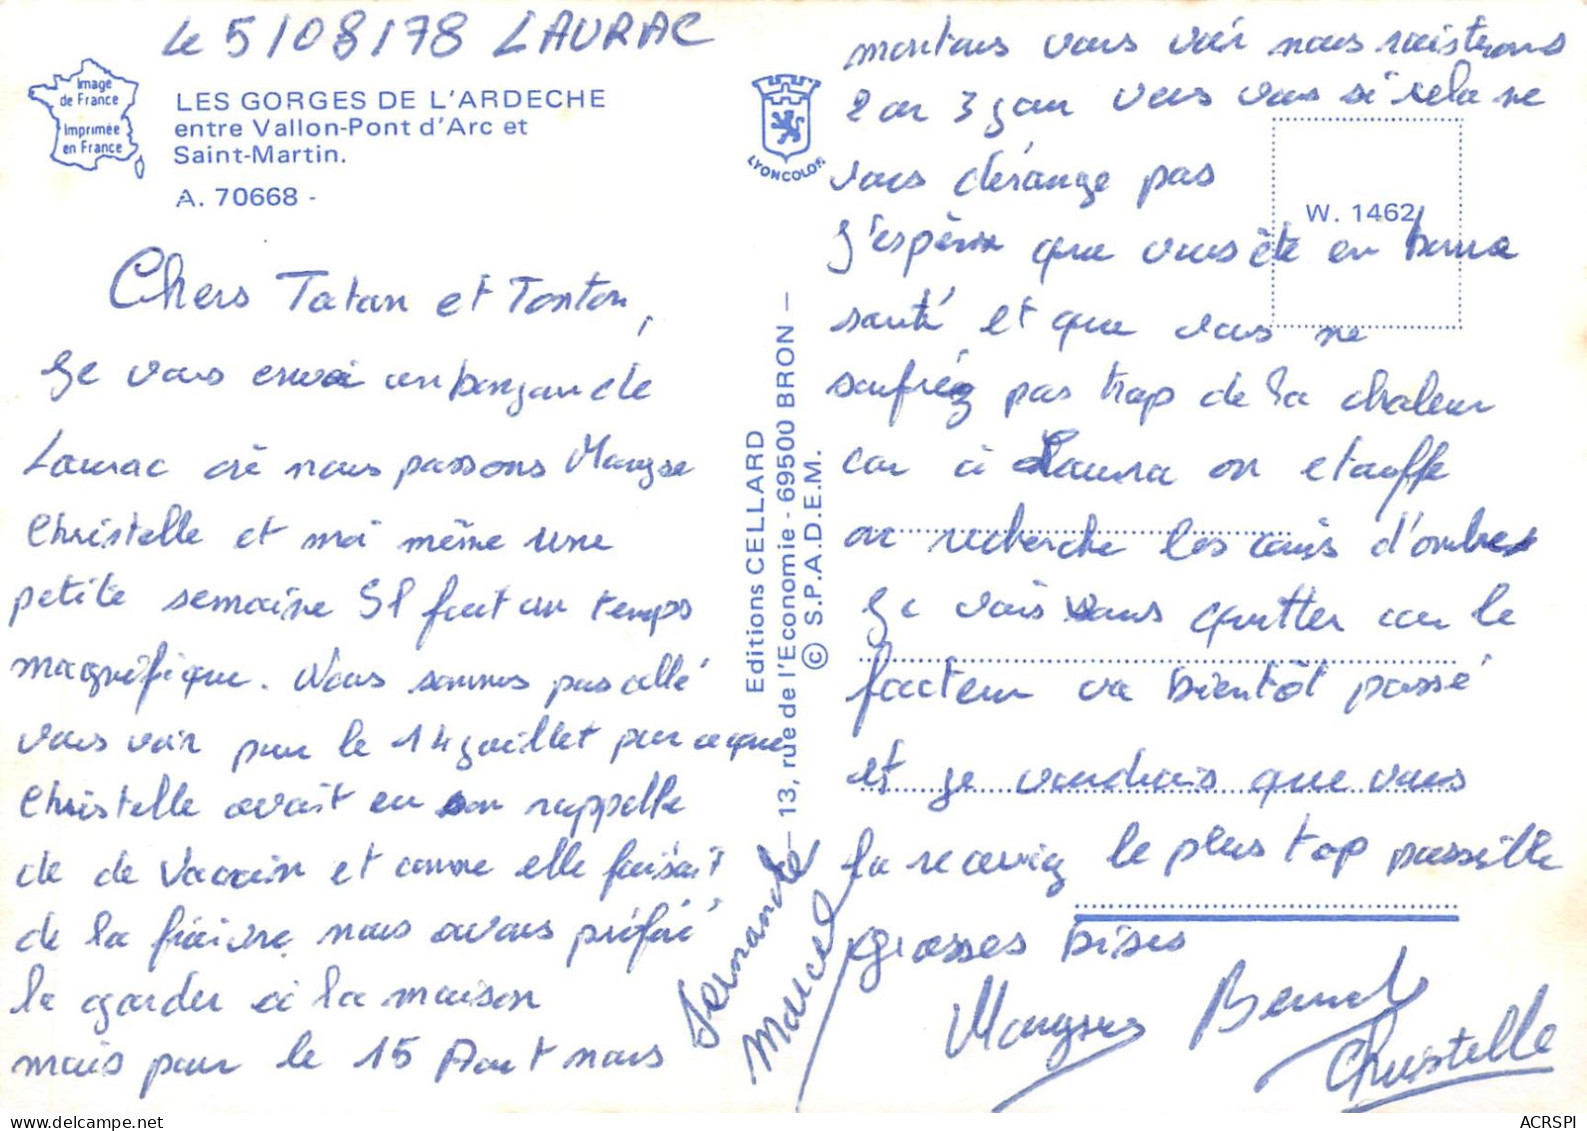 le 5/08/78 LAURAC
Image
de France
Imprimée
en France
LES GORGES DE L'ARDECHE
entre Vallon-Pont d'Arc et
Saint-Martin.
A. 70668 -
Chers Tatan et Tonton,
Je vous envoi un bonjour de
Laurac où nous passons Maryse
Christelle et moi même une
petite semaine Il fait un temps
magnifique. Nous sommes pas allé
vous voir pour le 14 juillet parce que
Christelle avait eu son rappelle
de de Vaccin et comme elle faisait
de la fiaivre nous avons préféré
la garder à la maison
mais pour le 15 Aout nous
Editions CELLARD
— 13, rue de l'Economie - 69500 BRON —
© S.P.A.D.E.M.
LYONCOLOR
W. 1462
montons vous voir nous raisterons
2 ou 3 jour vers vous si cela ne
vous dérange pas
J'espère que vous ête en bonne
santé et que vous ne
soufréz pas trop de la chaleur
car à Laurac on etouffe
on recherche les coins d'ombres
Je vais vous quitter car le
facteur va bientôt passé
et je voudrais que vous
la receviez le plus top possible
grosses bises
Fernande
Marcel
Maryse
Bernard
Christelle
ACRSPI